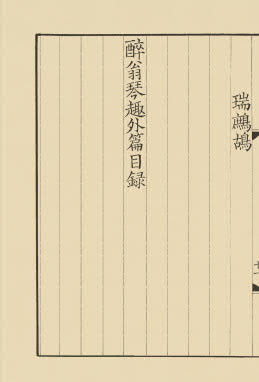 瑞鷓鴣
醉翁琴趣外篇目録